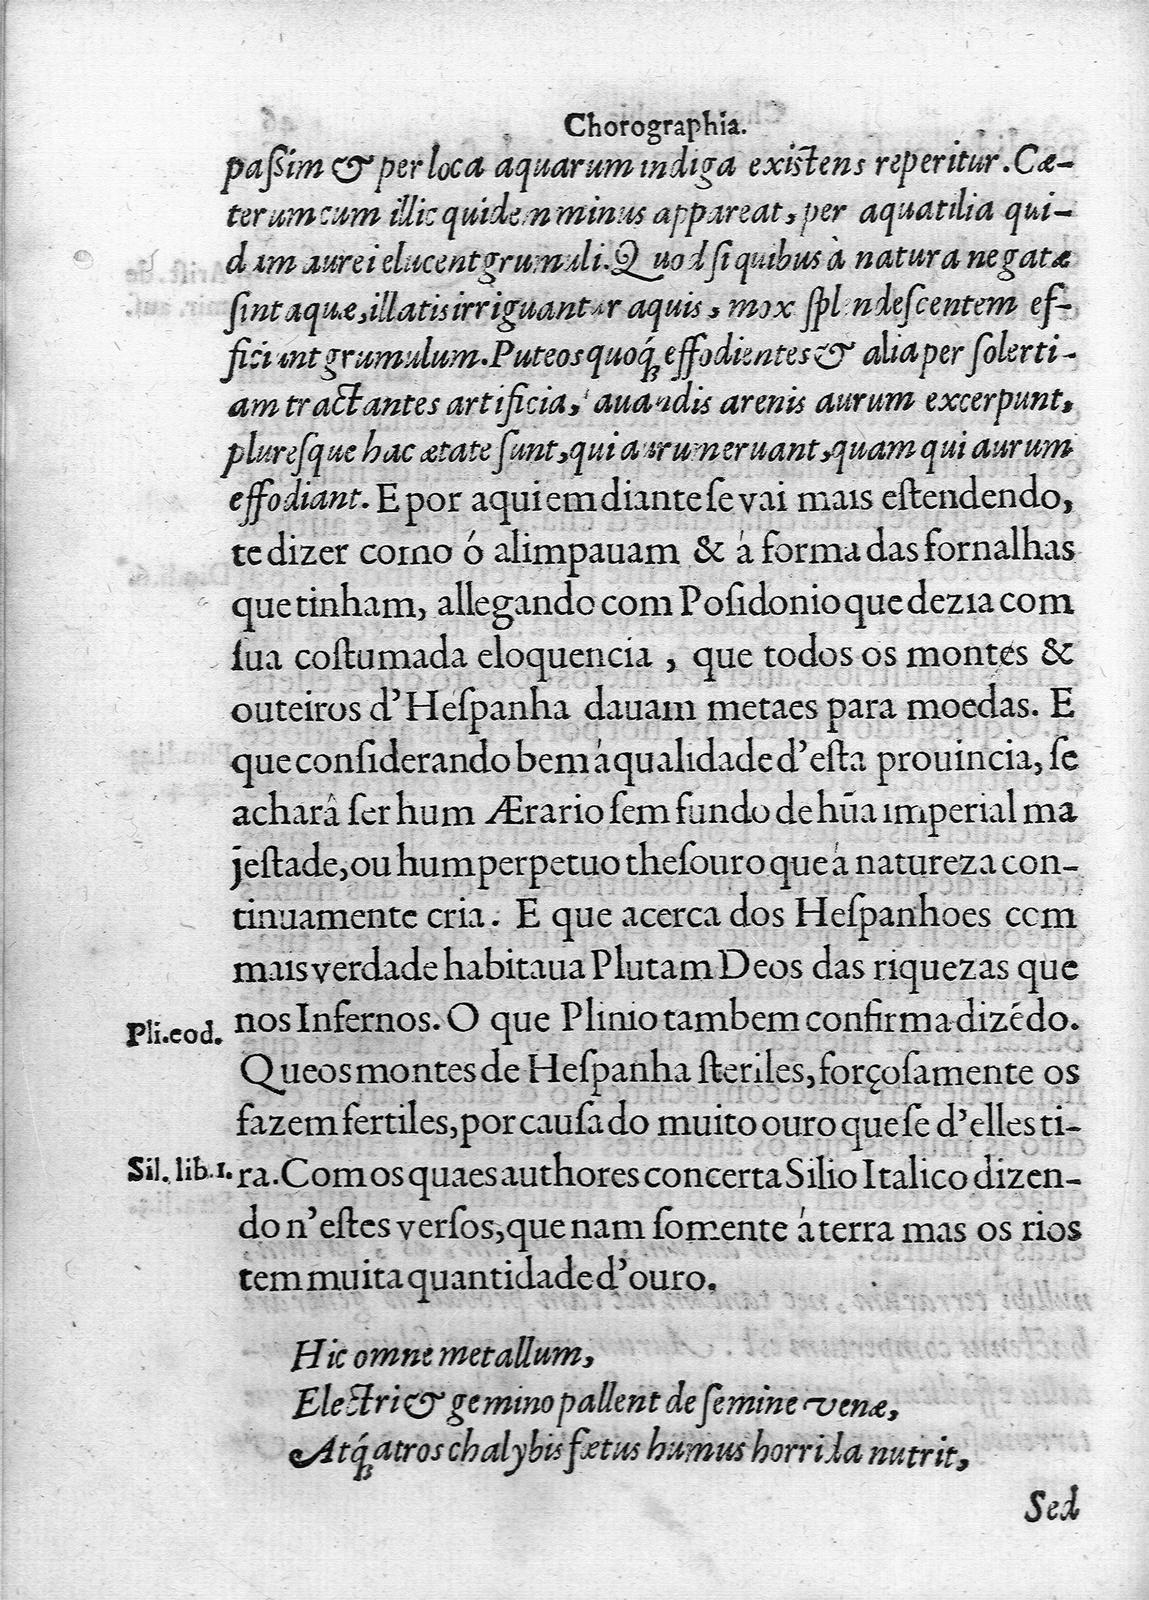 Chorographia.
paſsim & per loca aquarum indiga existens reperitur. Cæ-
terum cum illic quidem minus appareat, per aquatilia qui-
dam aurei elucent grumuli. Quod ſi quibus à natura negatæ
ſint aquæ, illatis irriguantur aquis, mox ſplendeſcentem ef-
ficiunt grumulum. Puteos quoq́; effodientes & alia per ſolerti-
am tractantes artificia, auandis arenis aurum excerpunt,
pluresque hac ætate ſunt, qui aurum eruant, quam qui aurum
effodiant. E por aqui em diante ſe vai mais eſtendendo,
te dizer como ó alimpauam & á forma das fornalhas
que tinham, allegando com Poſidonio que dezia com
ſua coſtumada eloquencia, que todos os montes &
outeiros d'Heſpanha dauam metaes para moedas. E
que conſiderando bem á qualidade d'eſta prouincia, ſe
achará ſer hum Ærario ſem fundo de hũa imperial ma
jeſtade, ou hum perpetuo theſouro que á natureza con-
tinuamente cria. E que acerca dos Heſpanhoes com
mais verdade habitaua Plutam Deos das riquezas que
nos Infernos. O que Plinio tambem confirma dizédo.
Pli. eod.
Que os montes de Heſpanha ſteriles, forçoſamente os
fazem fertiles, por cauſa do muito ouro que ſe d'elles ti-
Sil. lib. 1.
ra. Com os quaes authores concerta Silio Italico dizen-
do n'eſtes verſos, que nam ſomente á terra mas os rios
tem muita quantidade d'ouro.
Hic omne metallum,
Electri & gemino pallent de ſemine venæ,
Atq́; atros chalybis fætus humus horrida nutrit,
Sed